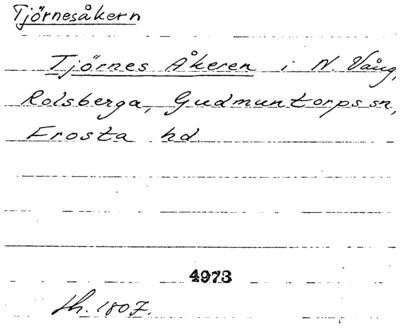 Tjörnesåkern
Tjörnes Åkeren i N. Vång,
Rolsberga, Gudmuntorps sn,
Frosta hd
4973
Lh. 1807.